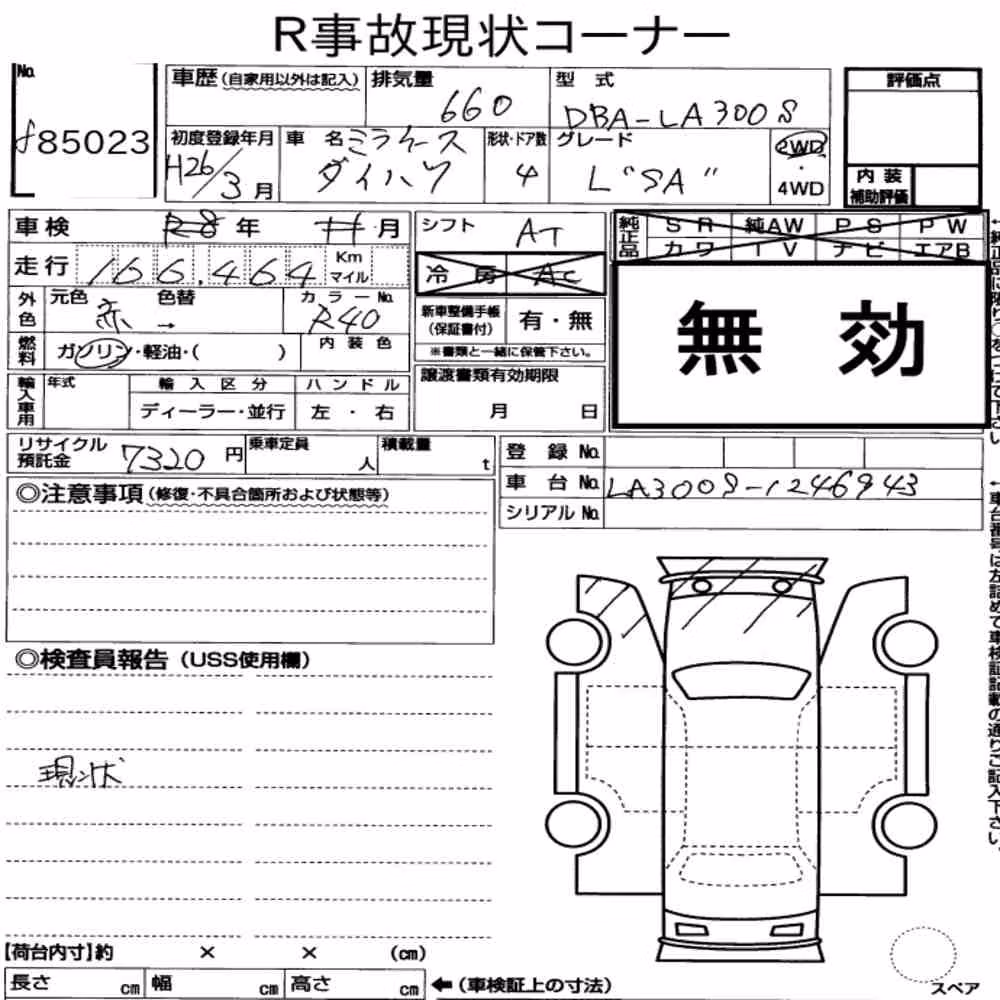 R事故現状コーナー
No.
85023
車歴(自家用以外は記入)
排気量
660
型 式
DBA-LA300S
評価点
初度登録年月
H26/3月
車 名
ミラ イース
ダイハツ
形状・ドア数
4
グレード
L"SA"
2WD
・
4WD
内 装
補助評価
車検
R8年 11月
シフト
AT
純正品
S R 純AW P S P W
カワ T V ナビ エアB
走行
166,464
Km
マイル
冷 房 AC
無 効
外色
元色 赤 色替 →
カラーNo.
R40
新車整備手帳
(保証書付)
有・無
※書類と一緒に保管下さい。
燃料
ガソリン・軽油・( )
内 装 色
輸入車用
年式
輸 入 区 分
ディーラー・並行
ハ ン ド ル
左 ・ 右
譲渡書類有効期限
月 日
リサイクル
預託金
7320円
乗車定員
人
積載量
t
登 録 No.
車 台 No.
LA300S-1246943
シリアル No.
◎注意事項(修復・不具合箇所および状態等)
◎検査員報告(USS使用欄)
現状
【荷台内寸】約 × × (cm)
長さ cm 幅 cm 高さ cm ←(車検証上の寸法)
スペア
←車台番号は左詰めで車検証記載の通りご記入下さい。